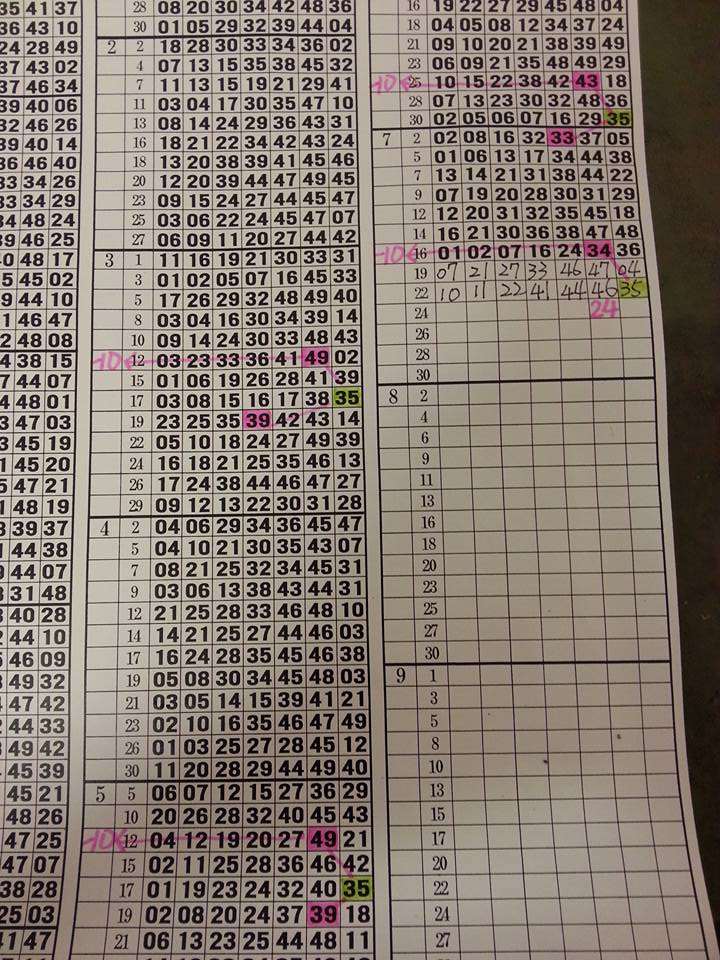 35 41 37
36 43 10
24 28 49
37 43 02
37 46 34
39 40 06
32 46 26
39 40 14
36 46 40
33 34 26
33 34 29
34 48 24
39 46 25
40 48 17
45 02
44 10
46 47
48 08
38 15
44 07
48 01
47 03
45 19
45 20
47 21
48 19
39 37
44 38
44 07
31 48
40 28
44 10
46 09
49 32
47 42
44 33
49 42
45 39
45 21
48 26
47 25
47 07
38 28
25 03
41 47
28 08 20 30 34 42 48 36
30 01 05 29 32 39 44 04
2 2 18 28 30 33 34 36 02
4 07 13 15 35 38 45 32
7 11 13 15 19 21 29 41
11 03 04 17 30 35 47 10
13 08 14 24 29 36 43 31
16 18 21 22 34 42 43 24
18 13 20 38 39 41 45 46
20 12 20 39 44 47 49 45
23 09 15 24 27 44 45 47
25 03 06 22 24 45 47 07
27 06 09 11 20 27 44 42
3 1 11 16 19 21 30 33 31
3 01 02 05 07 16 45 33
5 17 26 29 32 48 49 40
8 03 04 16 30 34 39 14
10 09 14 24 30 33 48 43
12 03 23 33 36 41 49 02
15 01 06 19 26 28 41 39
17 03 08 15 16 17 38 35
19 23 25 35 39 42 43 14
22 05 10 18 24 27 49 39
24 16 18 21 25 35 46 13
26 17 24 38 44 46 47 27
29 09 12 13 22 30 31 28
4 2 04 06 29 34 36 45 47
5 04 10 21 30 35 43 07
7 08 21 25 32 34 45 31
9 03 06 13 38 43 44 31
12 21 25 28 33 46 48 10
14 14 21 25 27 44 46 03
17 16 24 28 35 45 46 38
19 05 08 30 34 45 48 03
21 03 05 14 15 39 41 21
23 02 10 16 35 46 47 49
26 01 03 25 27 28 45 12
30 11 20 28 29 44 49 40
5 5 06 07 12 15 27 36 29
10 20 26 28 32 40 45 43
12 04 12 19 20 27 49 21
15 02 11 25 28 36 46 42
17 01 19 23 24 32 40 35
19 02 08 20 24 37 39 18
21 06 13 23 25 44 48 11
16 19 22 27 29 45 48 04
18 04 05 08 12 34 37 24
21 09 10 20 21 38 39 49
23 06 09 21 35 48 49 29
25 10 15 22 38 42 43 18
28 07 13 23 30 32 48 36
30 02 05 06 07 16 29 35
7 2 02 08 16 32 33 37 05
5 01 06 13 17 34 44 38
7 13 14 21 31 38 44 22
9 07 19 20 28 30 31 29
12 12 20 31 32 35 45 18
14 16 21 30 36 38 47 48
16 01 02 07 16 24 34 36
19 07 21 27 33 46 47 04
22 10 11 22 41 44 46 35
24 24
26
28
30
8 2
4
6
9
11
13
16
18
20
23
25
27
30
9 1
3
5
8
10
13
15
17
20
22
24
27